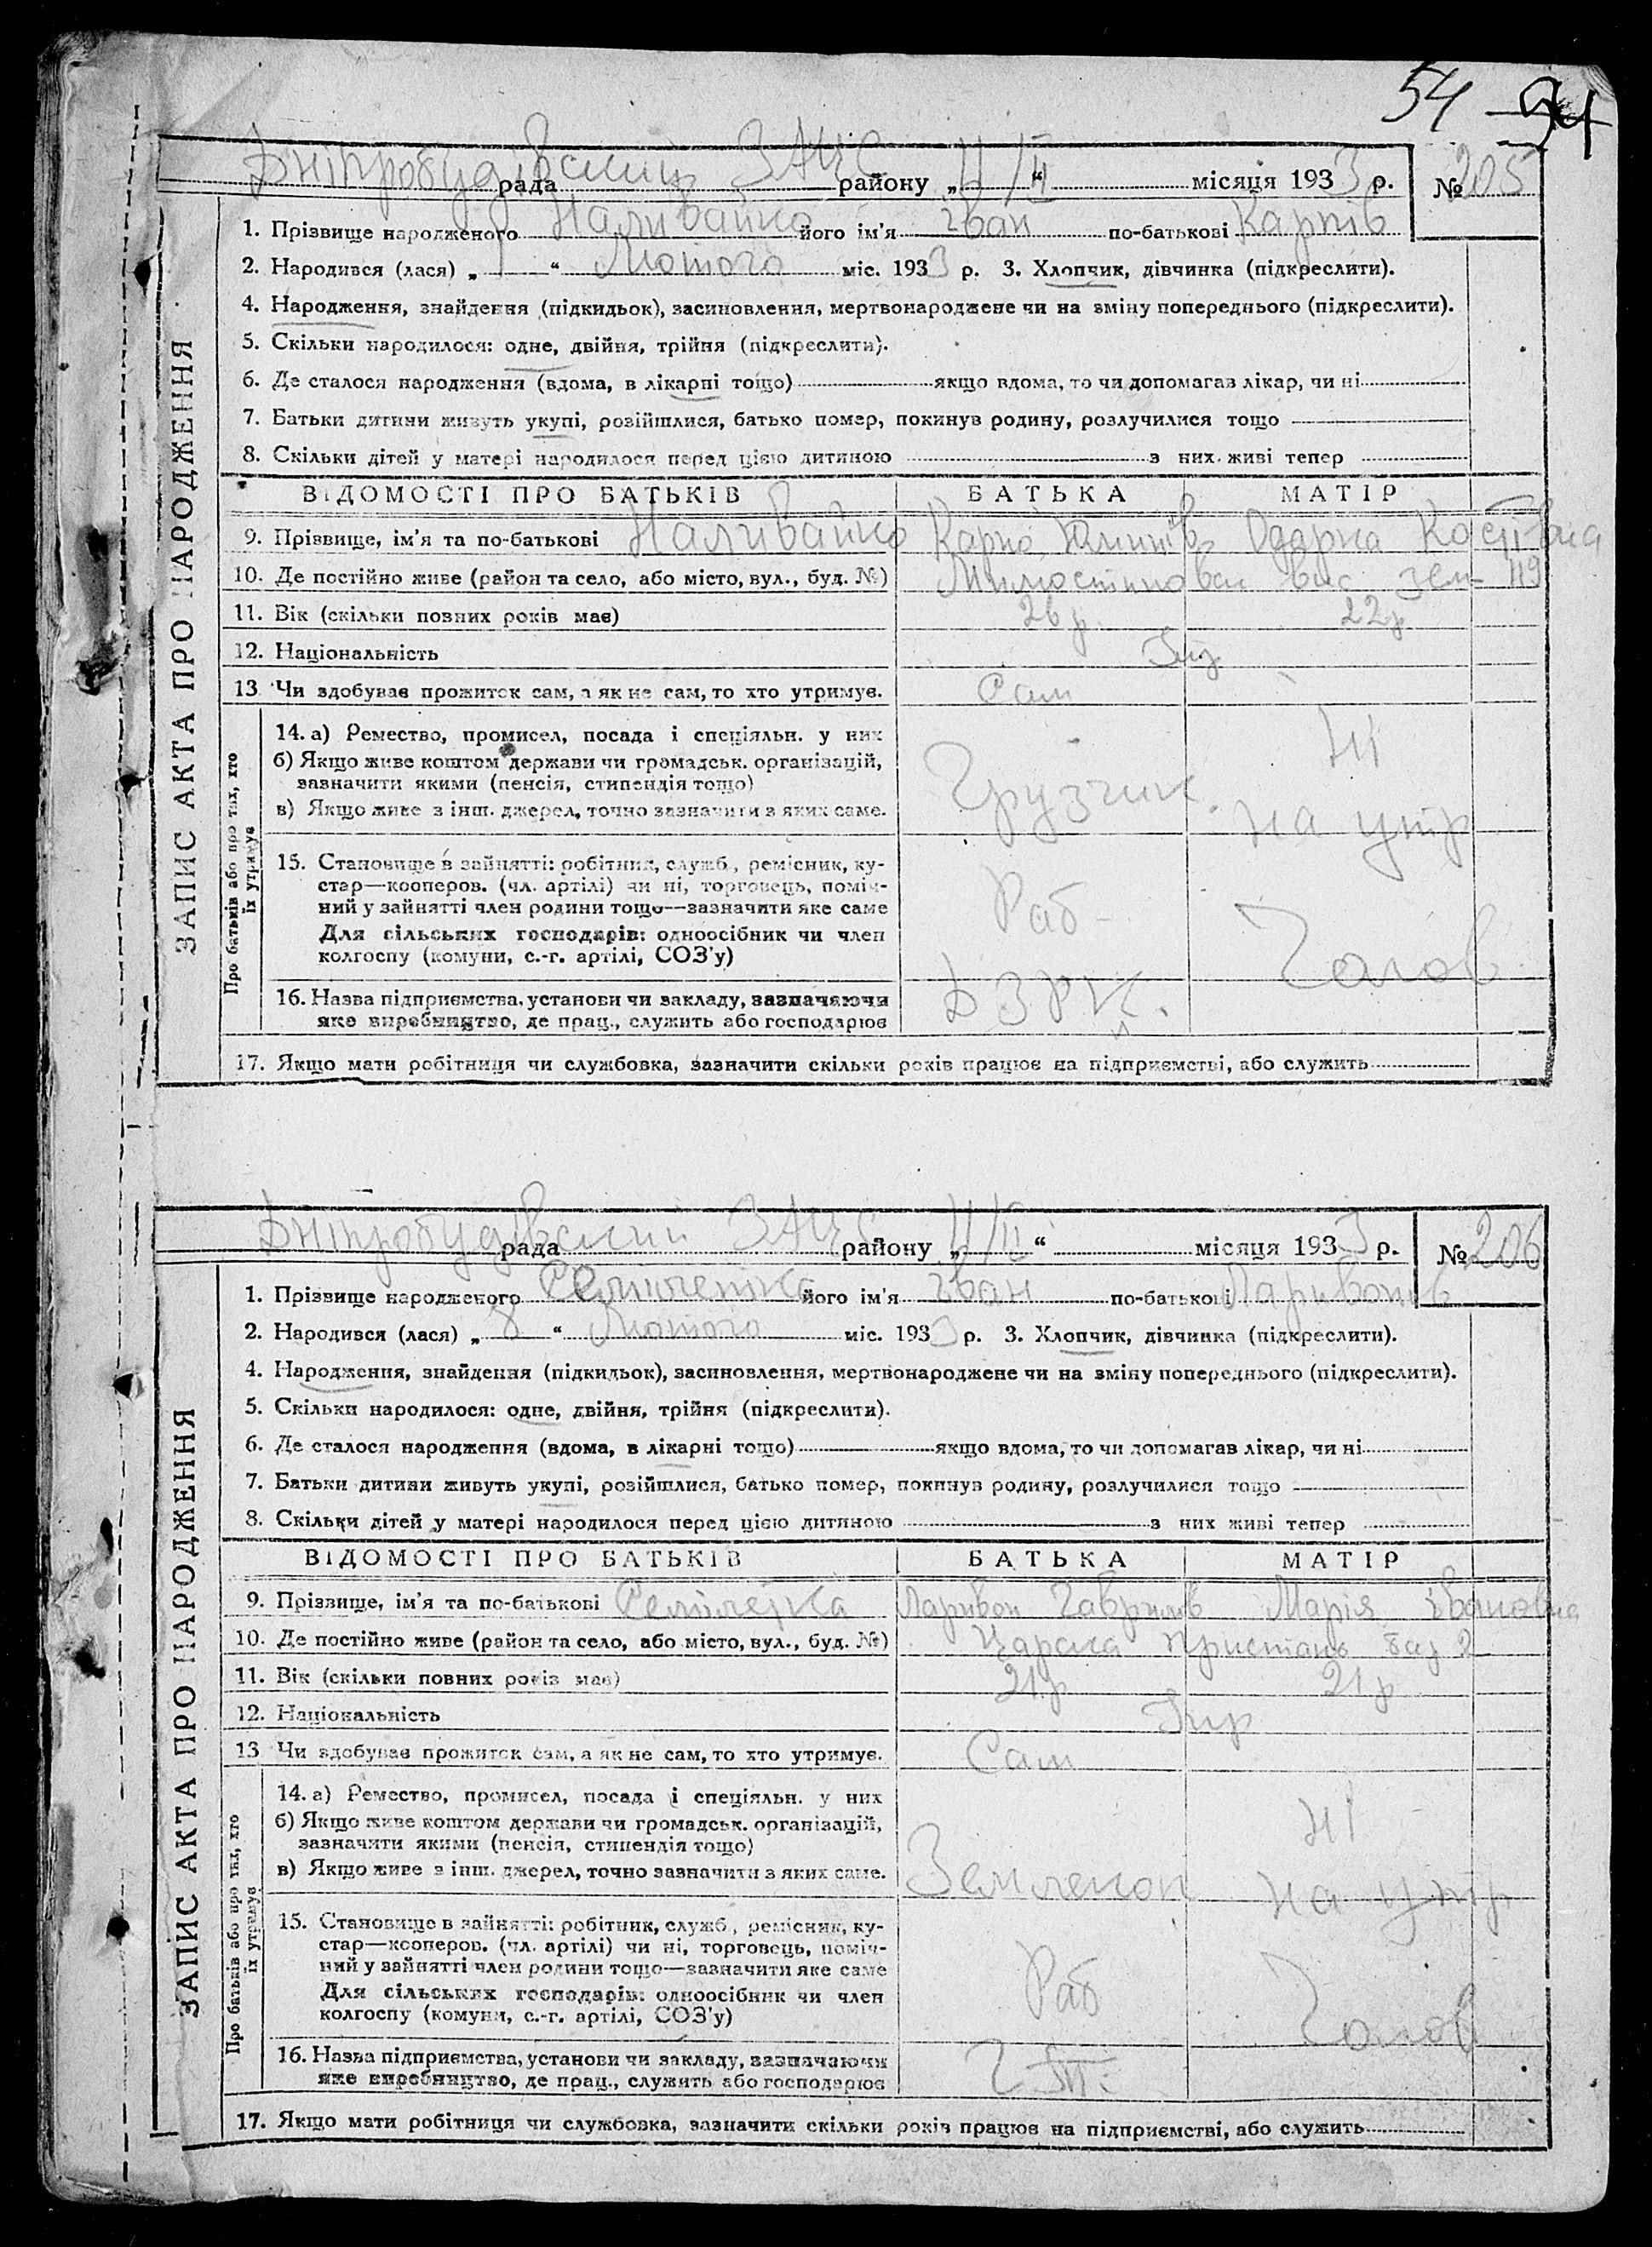 54 54
Дніпробудівський ЗАЦС
рада району „11/II“ місяця 1933 р. № 205
1. Прізвище народженого Наливайко його ім'я Іван по-батькові Карпів
2. Народився (лася) „ “ Лютого міс. 1933 р. 3. Хлопчик, дівчинка (підкреслити).
4. Народження, знайдення (підкидьок), засиновлення, мертвонароджене чи на зміну попереднього (підкреслити).
5. Скільки народилося: одне, двійня, трійня (підкреслити).
6. Де сталося народження (вдома, в лікарні тощо) якщо вдома, то чи допомагав лікар, чи ні
7. Батьки дитини живуть укупі, розійшлися, батько помер, покинув родину, розлучилися тощо
8. Скільки дітей у матері народилося перед цією дитиною з них живі тепер
ЗАПИС АКТА ПРО НАРОДЖЕННЯ
ВІДОМОСТІ ПРО БАТЬКІВ БАТЬКА МАТІР
9. Прізвище, ім'я та по-батькові Наливайко Карпо Одарка Костівна
10. Де постійно живе (район та село, або місто, вул., буд. №) зем- 119
11. Вік (скільки повних років має) 26 р. 22 р
12. Національність Укр.
13 Чи здобуває прожиток сам, а як не сам, то хто утримує. Сам
Про батьків або про тих, хто їх утримує
14. а) Ремество, промисел, посада і спеціяльн. у них
б) Якщо живе коштом держави чи громадськ. організацій,
зазначити якими (пенсія, стипендія тощо)
в) Якщо живе з інш. джерел, точно зазначити з яких саме.
Грузчик ні на утр
15. Становище в зайнятті: робітник, служб., ремісник, ку-
стар—кооперов. (чл. артілі) чи ні, торговець, поміч-
ний у зайнятті член родини тощо—зазначити яке саме
Для сільських господарів: одноосібник чи член
колгоспу (комуни, с.-г. артілі, СОЗ'у)
Раб- Чолов
16. Назва підприємства, установи чи закладу, зазначаючи
яке виробництво, де прац., служить або господарює
ДЗРК.
17. Якщо мати робітниця чи службовка, зазначити скільки років працює на підприємстві, або служить
Дніпробудівський ЗАЦС
рада району „11/II“ місяця 1933 р. № 206
1. Прізвище народженого його ім'я Іван по-батькові Ларивонів
2. Народився (лася) „8“ Лютого міс. 1933 р. 3. Хлопчик, дівчинка (підкреслити).
4. Народження, знайдення (підкидьок), засиновлення, мертвонароджене чи на зміну попереднього (підкреслити).
5. Скільки народилося: одне, двійня, трійня (підкреслити).
6. Де сталося народження (вдома, в лікарні тощо) якщо вдома, то чи допомагав лікар, чи ні
7. Батьки дитини живуть укупі, розійшлися, батько помер, покинув родину, розлучилися тощо
8. Скільки дітей у матері народилося перед цією дитиною з них живі тепер
ЗАПИС АКТА ПРО НАРОДЖЕННЯ
ВІДОМОСТІ ПРО БАТЬКІВ БАТЬКА МАТІР
9. Прізвище, ім'я та по-батькові Ларивон Гаврилів Марія Івановна
10. Де постійно живе (район та село, або місто, вул., буд. №) Царська Пристань 2
11. Вік (скільки повних років має) 21 р 21 р
12. Національність Укр
13 Чи здобуває прожиток сам, а як не сам, то хто утримує. Сам
Про батьків або про тих, хто їх утримує
14. а) Ремество, промисел, посада і спеціяльн. у них
б) Якщо живе коштом держави чи громадськ. організацій,
зазначити якими (пенсія, стипендія тощо)
в) Якщо живе з інш. джерел, точно зазначити з яких саме.
Землекоп ні на утр
15. Становище в зайнятті: робітник, служб., ремісник, ку-
стар—кооперов. (чл. артілі) чи ні, торговець, поміч-
ний у зайнятті член родини тощо—зазначити яке саме
Для сільських господарів: одноосібник чи член
колгоспу (комуни, с.-г. артілі, СОЗ'у)
Раб Чолов
16. Назва підприємства, установи чи закладу, зазначаючи
яке виробництво, де прац., служить або господарює
17. Якщо мати робітниця чи службовка, зазначити скільки років працює на підприємстві, або служить